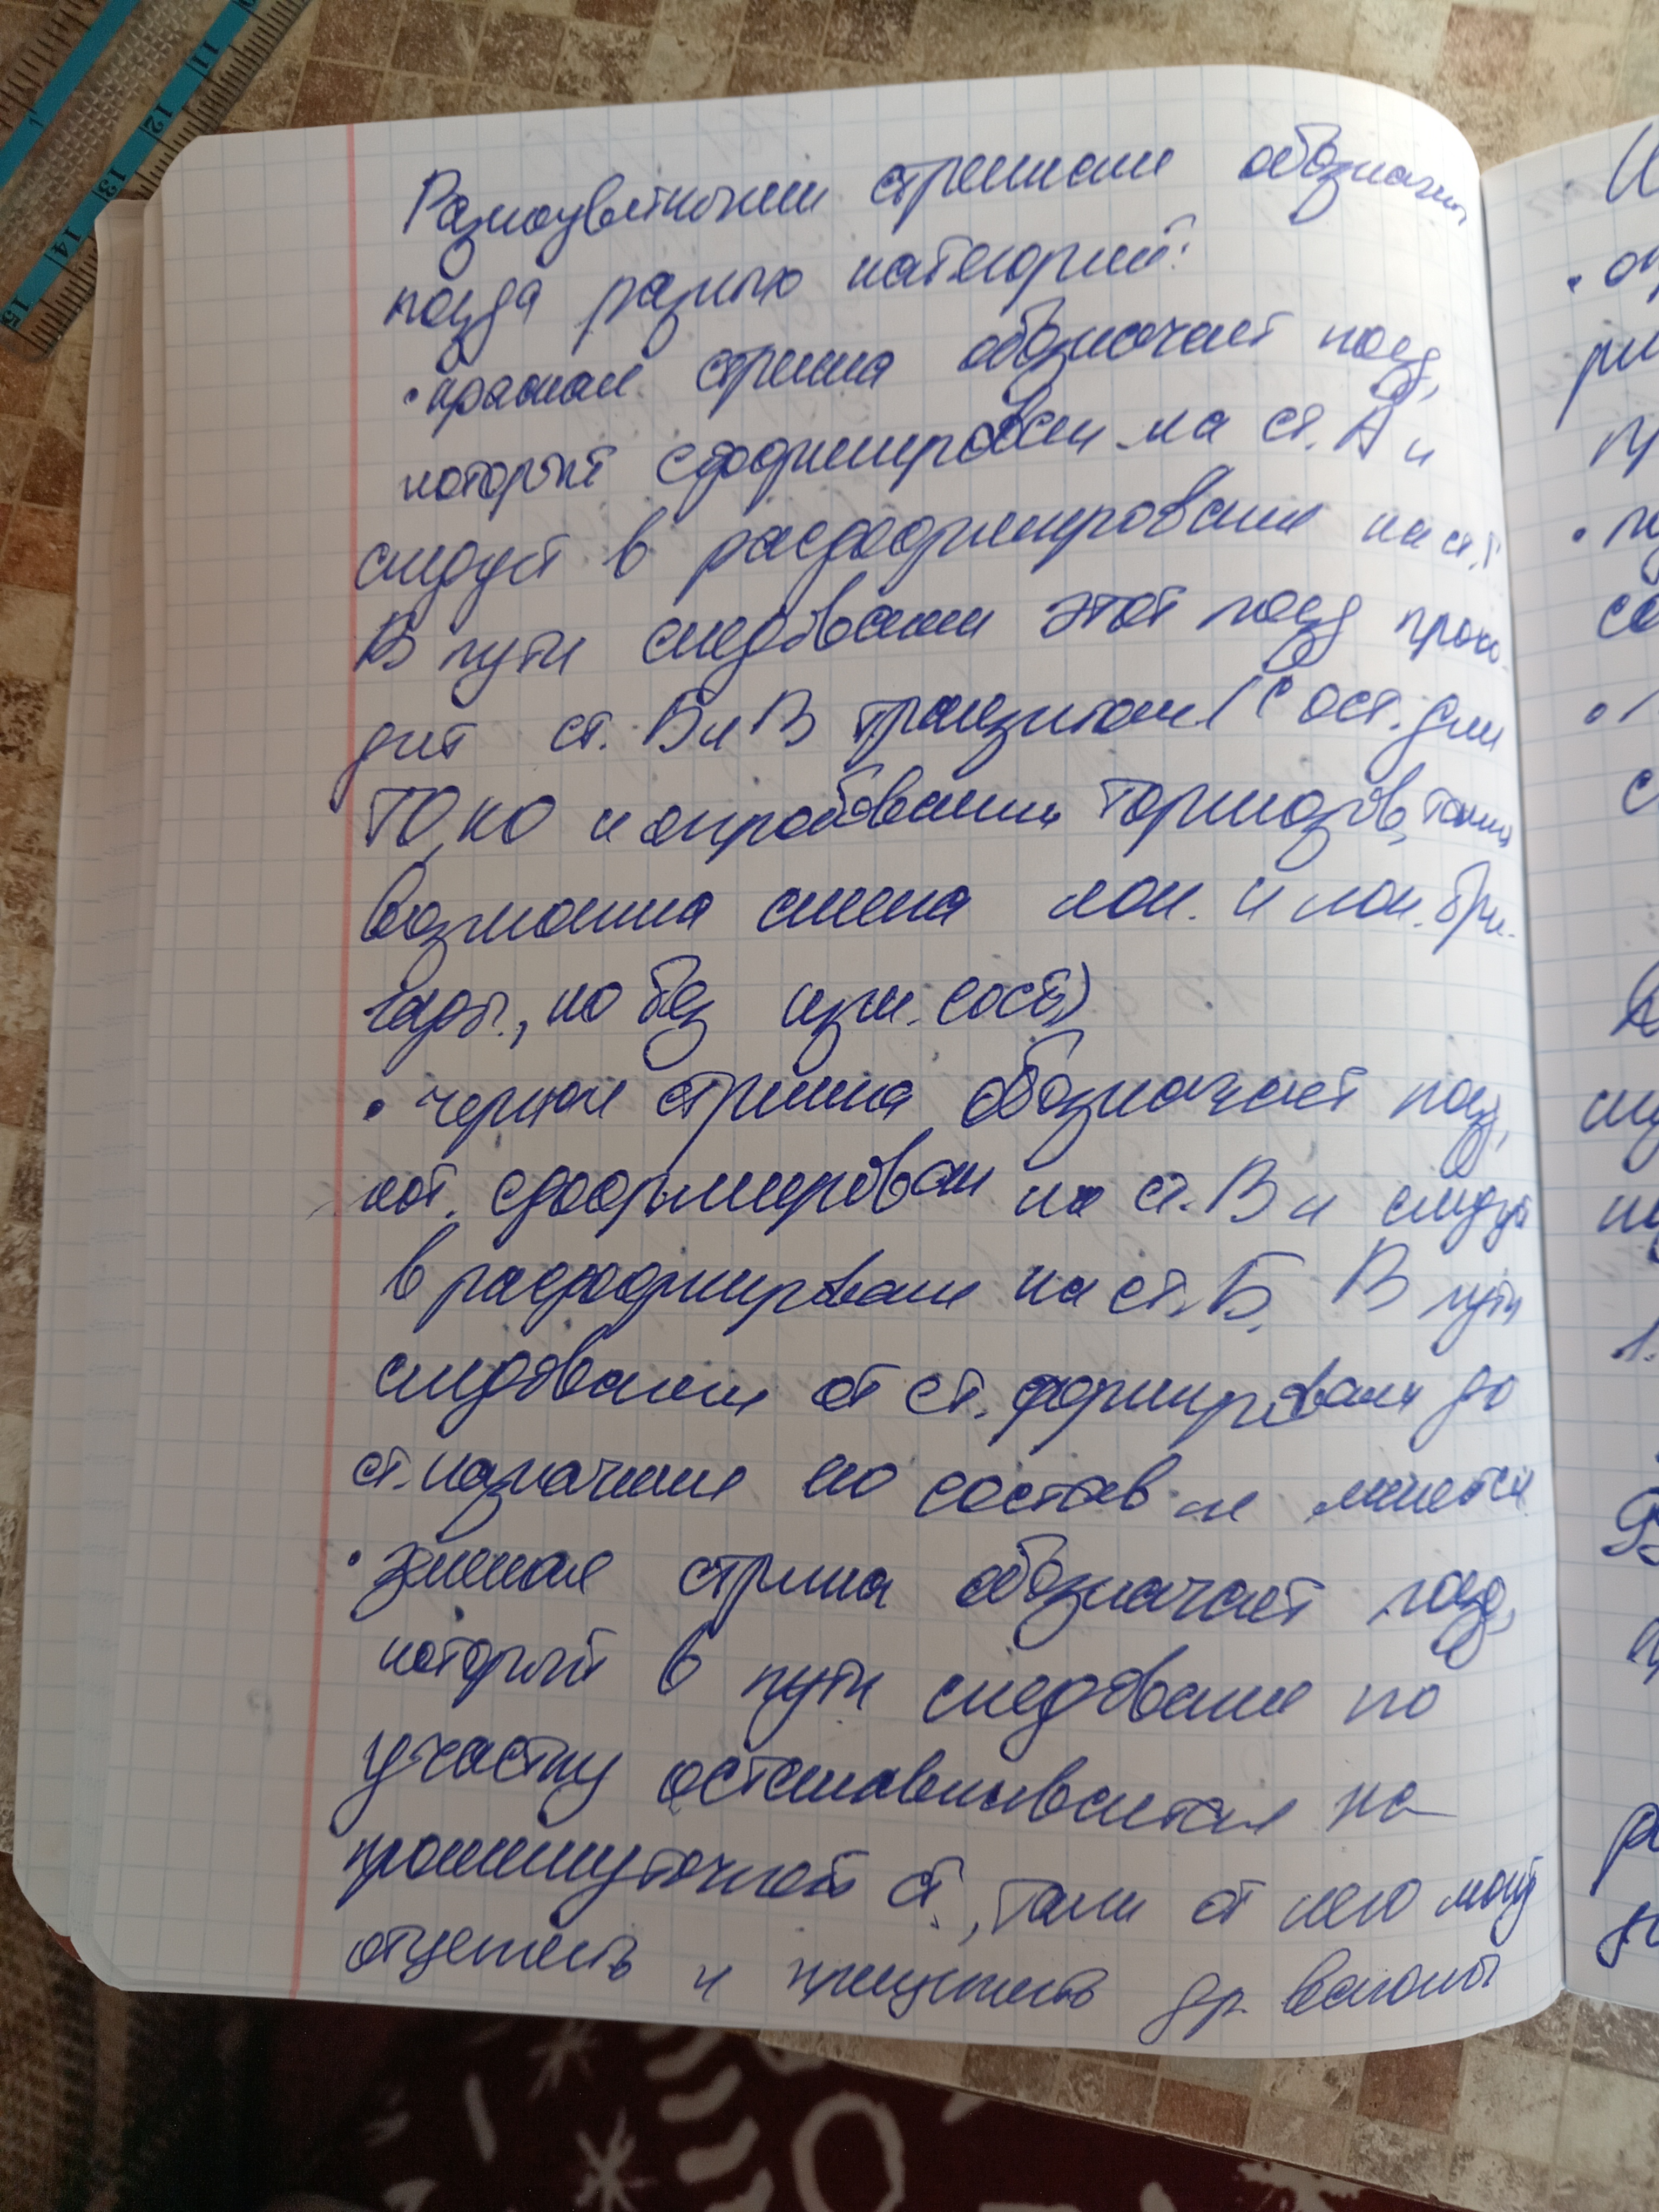 Разноцветными стрелками обозначены
поезда разных категорий:
• красная стрелка обозначает поезд,
который сформирован на ст. А и
следует в расформирование на ст. Г
В пути следования этот поезд прохо-
дит ст. Б и В транзитом (с ост. для
ТО, КО и опробования тормозов, также
возможна смена лок. и лок. бри-
гады, но без изм. сост.)
• черная стрелка обозначает поезд,
кот. сформирован на ст. В и следует
в расформирован на ст. Б. В пути
следования от ст. формирования до
ст. назначения его состав не меняется
• зеленая стрелка обозначает поезд,
который в пути следования по
участку останавливается на
промежуточной ст., там от него могут
отцепить и прицепить др. вагоны